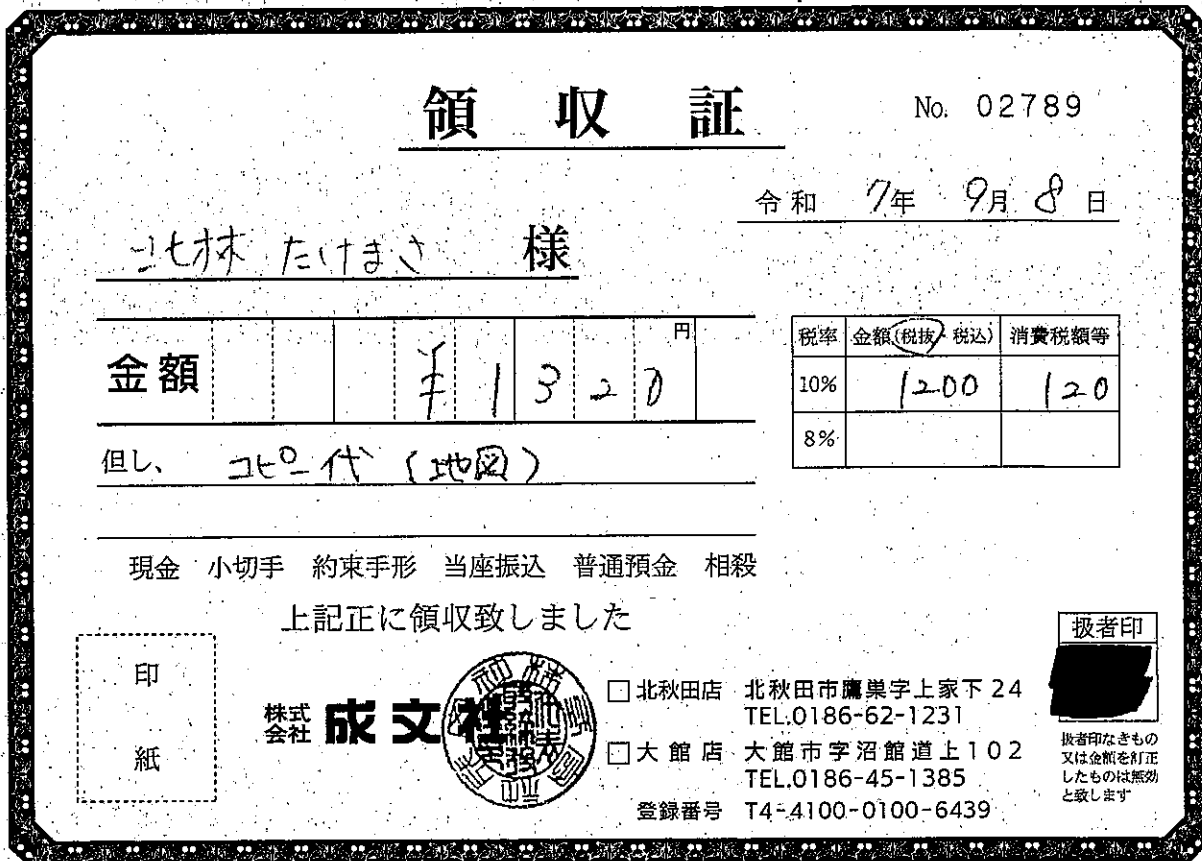 領収証
No. 02789
令和 7年 9月 8日
北林 たけまさ 様
金額 ¥1320円
税率 金額(税抜・税込) 消費税額等
10% 1200 120
8%
但し、 コピー代 (地図)
現金 小切手 約束手形 当座振込 普通預金 相殺
上記正に領収致しました
印紙
株式会社 成文社
□北秋田店 北秋田市鷹巣字上家下24
TEL.0186-62-1231
□大館店 大館市字沼館道上102
TEL.0186-45-1385
登録番号 T4-4100-0100-6439
扱者印
扱者印なきもの
又は金額を訂正
したものは無効
と致します